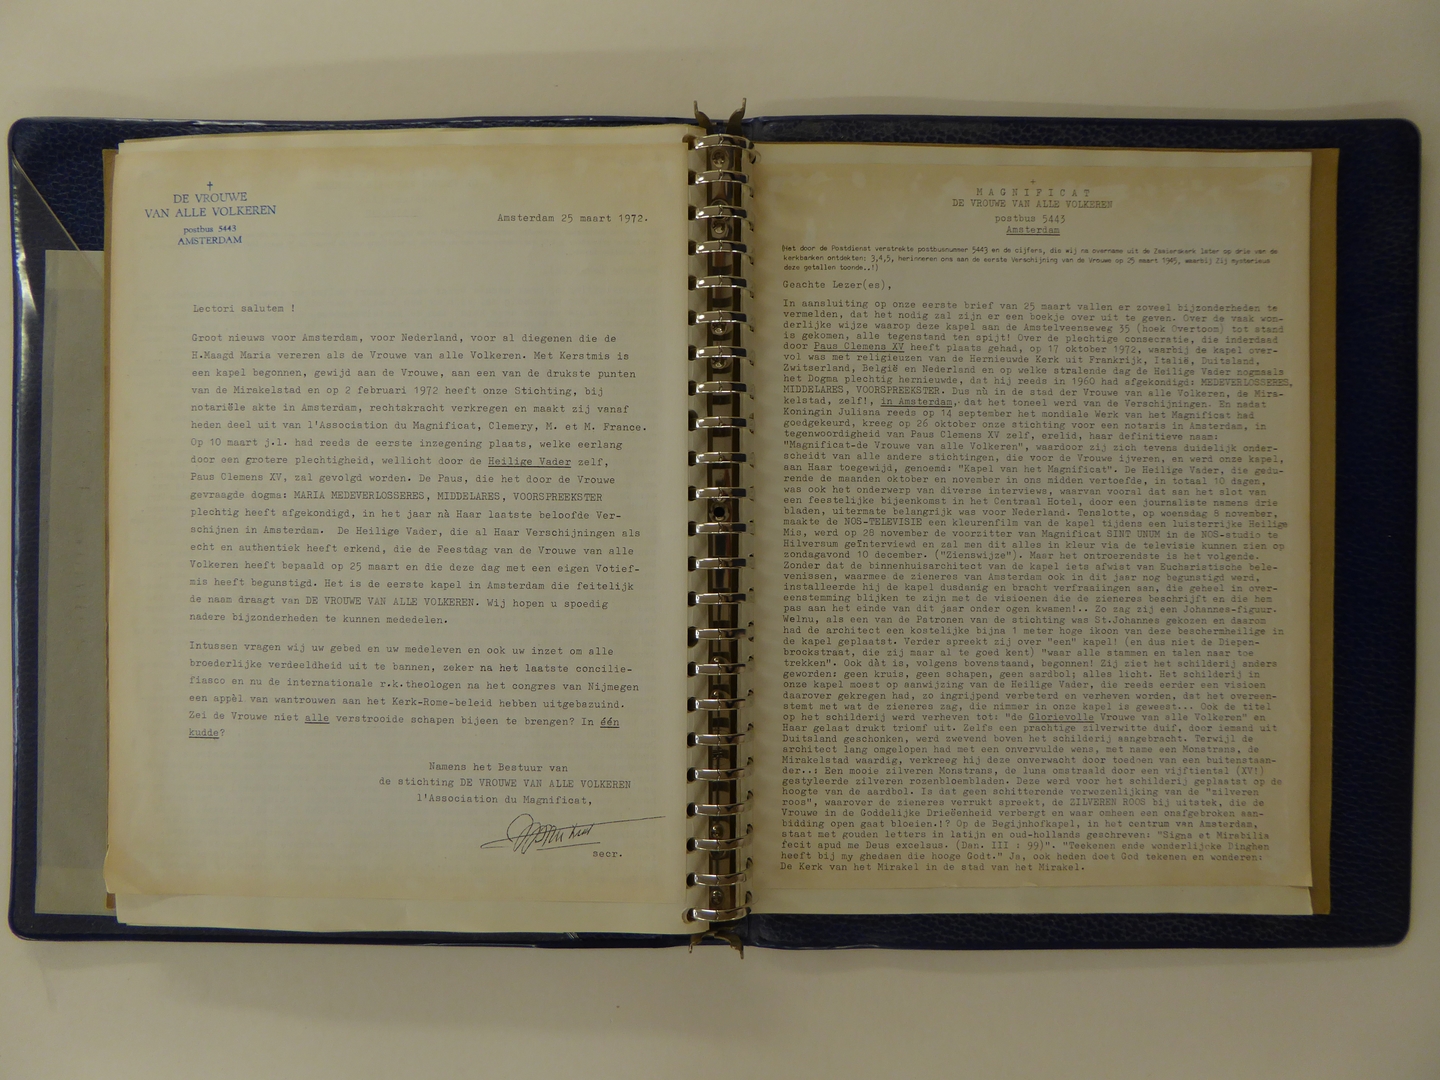 DE VROUWE
VAN ALLE VOLKEREN
postbus 5443
AMSTERDAM
Amsterdam 25 maart 1972.
Lectori salutem !
Groot nieuws voor Amsterdam, voor Nederland, voor al diegenen die de
H.Maagd Maria vereren als de Vrouwe van alle Volkeren. Met Kerstmis is
een kapel begonnen, gewijd aan de Vrouwe, aan een van de drukste punten
van de Mirakelstad en op 2 februari 1972 heeft onze Stichting, bij
notariële akte in Amsterdam, rechtskracht verkregen en maakt zij vanaf
heden deel uit van l'Association du Magnificat, Clemery, M. et M. France.
Op 10 maart j.l. had reeds de eerste inzegening plaats, welke eerlang
door een grotere plechtigheid, wellicht door de Heilige Vader zelf,
Paus Clemens XV, zal gevolgd worden. De Paus, die het door de Vrouwe
gevraagde dogma: MARIA MEDEVERLOSSERES, MIDDELARES, VOORSPREEKSTER
plechtig heeft afgekondigd, in het jaar nà Haar laatste beloofde Ver-
schijnen in Amsterdam. De Heilige Vader, die al Haar Verschijningen als
echt en authentiek heeft erkend, die de Feestdag van de Vrouwe van alle
Volkeren heeft bepaald op 25 maart en die deze dag met een eigen Votief-
mis heeft begunstigd. Het is de eerste kapel in Amsterdam die feitelijk
de naam draagt van DE VROUWE VAN ALLE VOLKEREN. Wij hopen u spoedig
nadere bijzonderheden te kunnen mededelen.
Intussen vragen wij uw gebed en uw medeleven en ook uw inzet om alle
broederlijke verdeeldheid uit te bannen, zeker na het laatste concilie-
fiasco en nu de internationale r.k.theologen na het congres van Nijmegen
een appèl van wantrouwen aan het Kerk-Rome-beleid hebben uitgebazuind.
Zei de Vrouwe niet alle verstrooide schapen bijeen te brengen? In één
kudde?
Namens het Bestuur van
de stichting DE VROUWE VAN ALLE VOLKEREN
l'Association du Magnificat,
secr.
MAGNIFICAT
DE VROUWE VAN ALLE VOLKEREN
postbus 5443
Amsterdam
(Het door de Postdienst verstrekte postbusnummer 5443 en de cijfers, die wij na overname uit de Zaaierskerk later op drie van de
kerkbanken ontdekten: 3,4,5, herinneren ons aan de eerste Verschijning van de Vrouwe op 25 maart 1945, waarbij Zij mysterieus
deze getallen toonde..!)
Geachte Lezer(es),
In aansluiting op onze eerste brief van 25 maart vallen er zoveel bijzonderheden te
vermelden, dat het nodig zal zijn er een boekje over uit te geven. Over de vaak won-
derlijke wijze waarop deze kapel aan de Amstelveenseweg 35 (hoek Overtoom) tot stand
is gekomen, alle tegenstand ten spijt! Over de plechtige consecratie, die inderdaad
door Paus Clemens XV heeft plaats gehad, op 17 oktober 1972, waarbij de kapel over-
vol was met religieuzen van de Hernieuwde Kerk uit Frankrijk, Italië, Duitsland,
Zwitserland, België en Nederland en op welke stralende dag de Heilige Vader nogmaals
het Dogma plechtig hernieuwde, dat hij reeds in 1960 had afgekondigd: MEDEVERLOSSERES,
MIDDELARES, VOORSPREEKSTER. Dus nù in de stad der Vrouwe van alle Volkeren, de Mira-
kelstad, zelf!, in Amsterdam, dat het toneel werd van de Verschijningen. En nadat
Koningin Juliana reeds op 14 september het mondiale Werk van het Magnificat had
goedgekeurd, kreeg op 26 oktober onze stichting voor een notaris in Amsterdam, in
tegenwoordigheid van Paus Clemens XV zelf, erelid, haar definitieve naam:
"Magnificat-de Vrouwe van alle Volkeren", waardoor zij zich tevens duidelijk onder-
scheidt van alle andere stichtingen, die voor de Vrouwe ijveren, en werd onze kapel,
aan Haar toegewijd, genoemd: "Kapel van het Magnificat". De Heilige Vader, die gedu-
rende de maanden oktober en november in ons midden vertoefde, in totaal 10 dagen,
was ook het onderwerp van diverse interviews, waarvan vooral dat aan het slot van
een feestelijke bijeenkomst in het Centraal Hotel, door een journaliste namens drie
bladen, uitermate belangrijk was voor Nederland. Tenslotte, op woensdag 8 november,
maakte de NOS-TELEVISIE een kleurenfilm van de kapel tijdens een luisterrijke Heilige
Mis, werd op 28 november de voorzitter van Magnificat SINT UNUM in de NOS-studio te
Hilversum geïnterviewd en zal men dit alles in kleur via de televisie kunnen zien op
zondagavond 10 december. ("Zienswijze"). Maar het ontroerendste is het volgende.
Zonder dat de binnenhuisarchitect van de kapel iets afwist van Eucharistische bele-
venissen, waarmee de zieneres van Amsterdam ook in dit jaar nog begunstigd werd,
installeerde hij de kapel dusdanig en bracht verfraaiingen aan, die geheel in over-
eenstemming blijken te zijn met de visioenen die de zieneres beschrijft en die hem
pas aan het einde van dit jaar onder ogen kwamen!.. Zo zag zij een Johannes-figuur.
Welnu, als een van de Patronen van de stichting was St.Johannes gekozen en daarom
had de architect een kostelijke bijna 1 meter hoge ikoon van deze beschermheilige in
de kapel geplaatst. Verder spreekt zij over "een" kapel! (en dus niet de Diepen-
brockstraat, die zij maar al te goed kent) "waar alle stammen en talen naar toe
trekken". Ook dàt is, volgens bovenstaand, begonnen! Zij ziet het schilderij anders
geworden: geen kruis, geen schapen, geen aardbol; alles licht. Het schilderij in
onze kapel moest op aanwijzing van de Heilige Vader, die reeds eerder een visioen
daarover gekregen had, zo ingrijpend verbeterd en verheven worden, dat het overeen-
stemt met wat de zieneres zag, die nimmer in onze kapel is geweest... Ook de titel
op het schilderij werd verheven tot: "de Glorievolle Vrouwe van alle Volkeren" en
Haar gelaat drukt triomf uit. Zelfs een prachtige zilverwitte duif, door iemand uit
Duitsland geschonken, werd zwevend boven het schilderij aangebracht. Terwijl de
architect lang omgelopen had met een onvervulde wens, met name een Monstrans, de
Mirakelstad waardig, verkreeg hij deze onverwacht door toedoen van een buitenstaan-
der..: Een mooie zilveren Monstrans, de luna omstraald door een vijftiental (XV!)
gestyleerde zilveren rozenbloembladen. Deze werd voor het schilderij geplaatst op de
hoogte van de aardbol. Is dat geen schitterende verwezenlijking van de "zilveren
roos", waarover de zieneres verrukt spreekt, de ZILVEREN ROOS bij uitstek, die de
Vrouwe in de Goddelijke Drieëenheid verbergt en waar omheen een onafgebroken aan-
bidding open gaat bloeien.!? Op de Begijnhofkapel, in het centrum van Amsterdam,
staat met gouden letters in latijn en oud-hollands geschreven: "Signa et Mirabilia
fecit apud me Deus excelsus. (Dan. III : 99)". "Teekenen ende wonderlijcke Dinghen
heeft bij my ghedaen die hooge Godt." Ja, ook heden doet God tekenen en wonderen:
De Kerk van het Mirakel in de stad van het Mirakel.